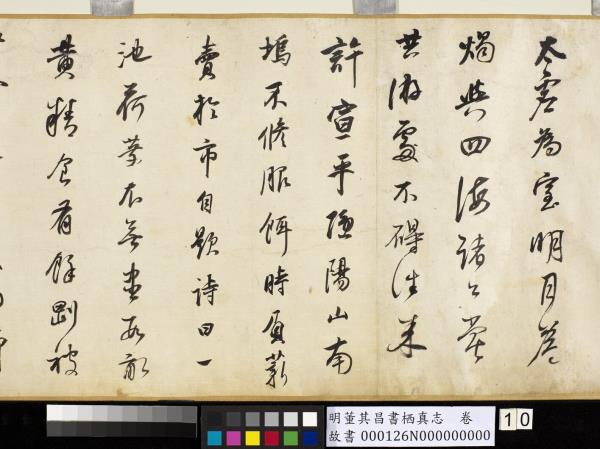 太虛為室明月為
燭與四海諸公嘗
共游處不礙往来
許宣平隱陽山南
塢不修服餌時負薪
賣於市自題詩曰一
池荷葉衣無盡數畝
黃精食有餘剛被
明董其昌書栖真志 卷
故書 000126N000000000
10